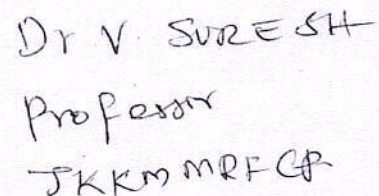 Dr V SURESH
Professor
JKKMMRFCP